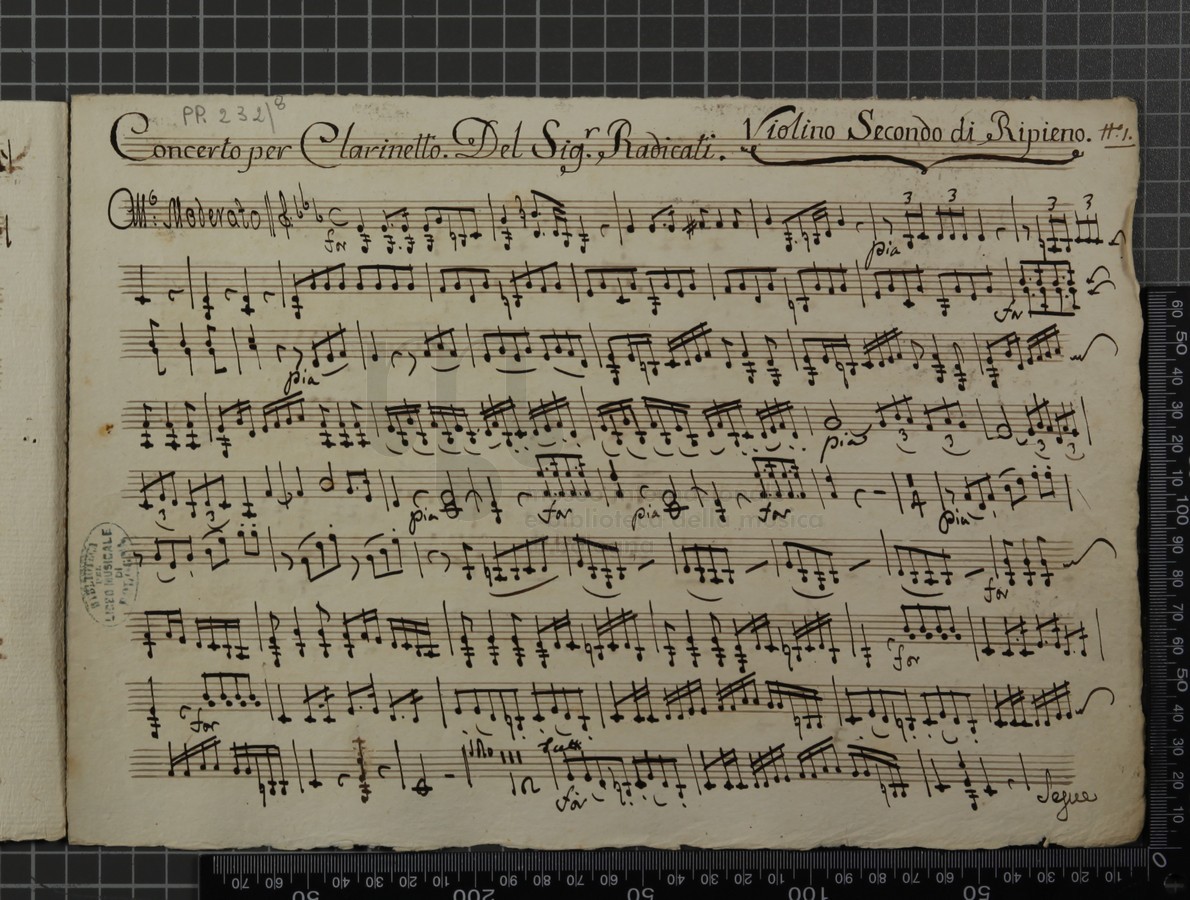 PP. 232/8
Concerto per Clarinetto. Del Sig.r Radicati. Violino Secondo di Ripieno. #1.
All.o Moderato
for
pia
3 3 3 3
for
pia
pia
3 3 3 3
3 3
pia for pia for pia
for
for
for
Solo Tutti
for
Segue
BIBLIOTECA
LICEO MUSICALE
DI
BOLOGNA
e biblioteca della musica
di Bologna